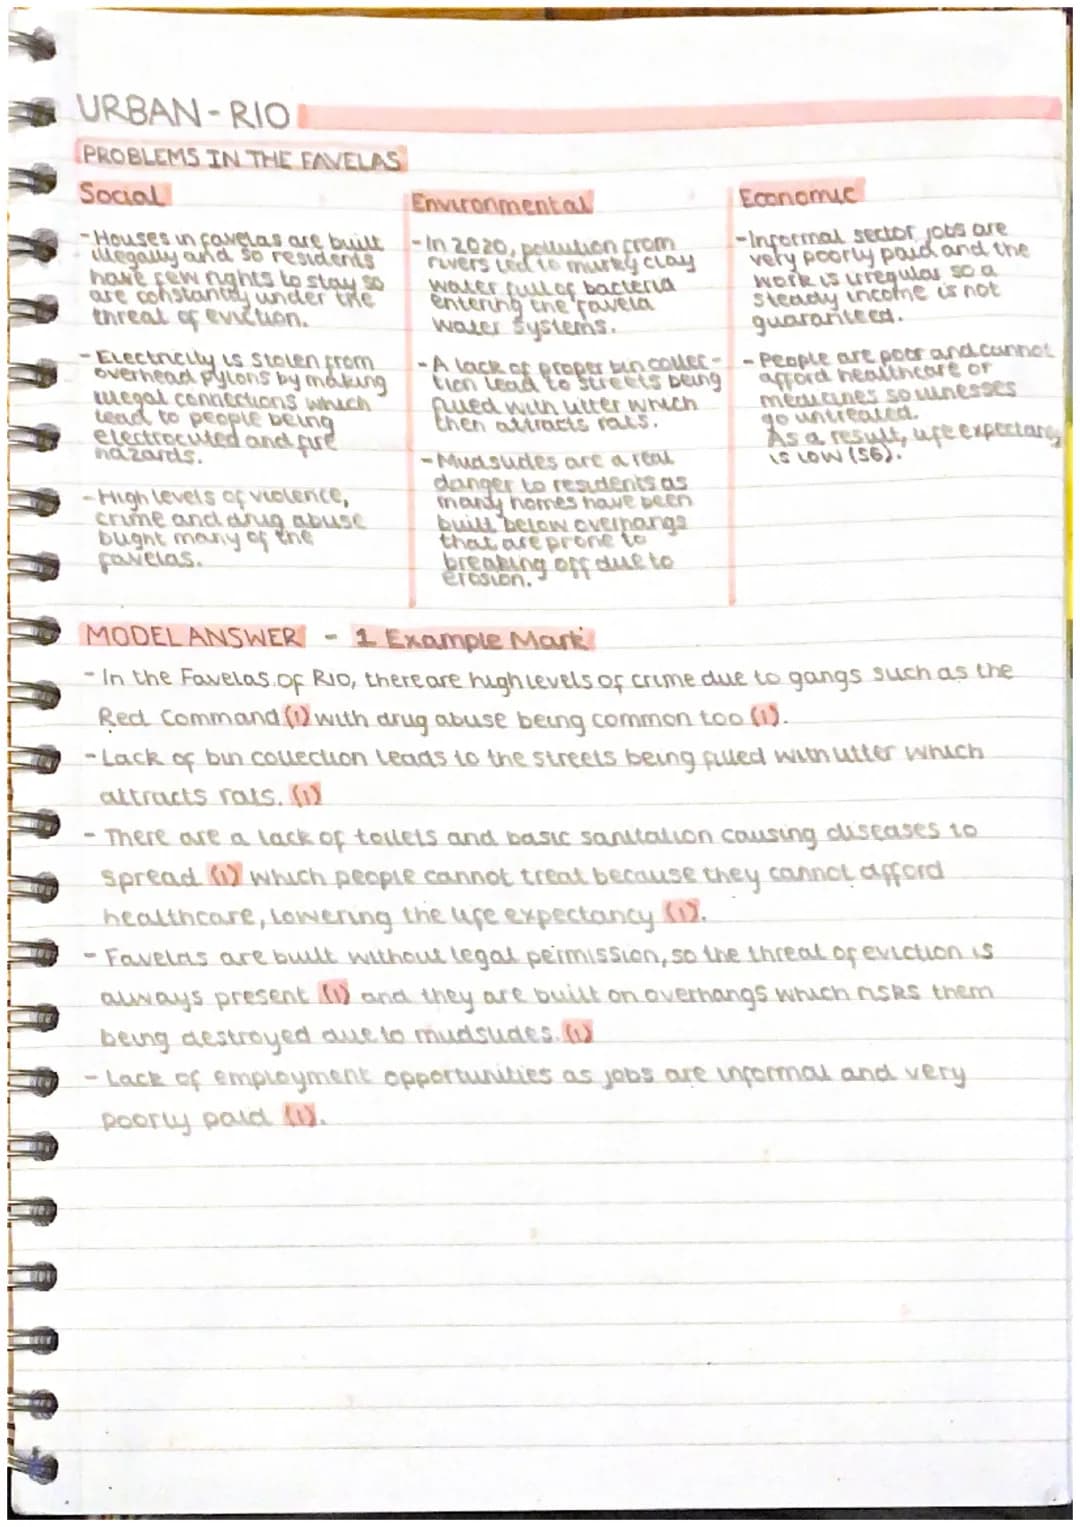 URBAN - RIO
PROBLEMS IN THE FAVELAS
Social
- Houses in favelas are built
illegally and so residents
have few rights to stay so
are constantly under the
threat of eviction.
- Electricity is stolen from
overhead pylons by making
illegal connections which
lead to people being
electrocuted and fire
hazards.
- High levels of violence,
crime and drug abuse
bught many of the
favelas.
Environmental
- In 2020, pollution from
rivers led to murky clay
water full of bacteria
entering the favela
water systems.
- A lack of proper bin collec-
tion lead to streets being
filled with litter which
then attracts rats.
- Mudslides are a real
danger to residents as
many homes have been
built below overhangs
that are prone to
breaking off due to
erosion.
Economic
- Informal sector jobs are
very poorly paid and the
work is irregular so a
steady income is not
guaranteed.
- People are poor and cannot
afford healthcare or
medicines so illnesses
go untreated.
As a result, life expectancy
is low (56).
MODEL ANSWER - 1 Example Mark
- In the Favelas of Rio, there are high levels of crime due to gangs such as the
Red Command (1) with drug abuse being common too (1).
- Lack of bin collection leads to the streets being filled with litter which
attracts rats. (1)
- There are a lack of toilets and basic sanitation causing diseases to
spread (1) which people cannot treat because they cannot afford
healthcare, lowering the life expectancy (1).
- Favelas are built without legal permission, so the threat of eviction is
always present (1) and they are built on overhangs which risks them
being destroyed due to mudslides. (1)
- Lack of employment opportunities as jobs are informal and very
poorly paid (1).